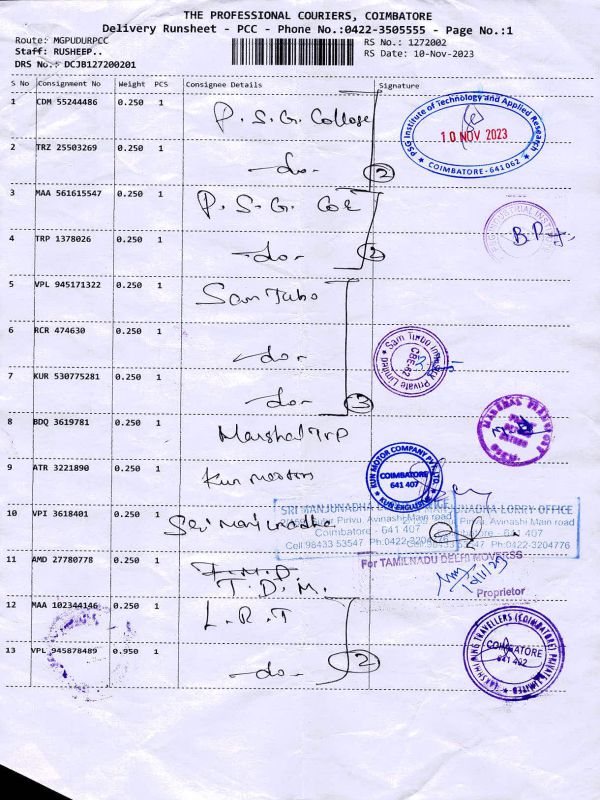 THE PROFESSIONAL COURIERS, COIMBATORE
Delivery Runsheet - PCC - Phone No.:0422-3505555 - Page No.:1
Route: MGPUDURPCC
RS No.: 1272002
Staff: RUSHEEP..
RS Date: 10-Nov-2023
DRS No.: DCJB127200201
S No Consignment No Weight PCS Consignee Details Signature
1 CDM 55244486 0.250 1 P. S. G. College
PSG Institute of Technology and Applied Research
10 NOV 2023
COIMBATORE - 641 062
2 TRZ 25503269 0.250 1 -do- 2
3 MAA 561615547 0.250 1 P. S. G. CoE
4 TRP 1378026 0.250 1 -do- 2
5 VPL 945171322 0.250 1 Sam Tubo
6 RCR 474630 0.250 1 -do-
Private Limited
7 KUR 530775281 0.250 1 -do- 3
8 BDQ 3619781 0.250 1 Marshal Trp
9 ATR 3221890 0.250 1 Kun motors
KUN MOTOR COMPANY PVT. LTD.
COIMBATORE
641 407
KUN EXCLUSIVE
10 VPI 3618401 0.250 1 Sri Manjunadha
SRI MANJUNADHA LORRY OFFICE
Pirivu, Avinashi Main road
Coimbatore - 641 407
Cell:98433 53547 Ph:0422-3204776
11 AMD 27780778 0.250 1 T. D. M.
For TAMILNADU DELHI MOVERSS
Proprietor
12 MAA 102344146 0.250 1 L. R. T
13 VPL 945878489 0.950 1 -do- 2
TRAVELLERS (COIMBATORE) PRIVATE LIMITED
COIMBATORE
641 402